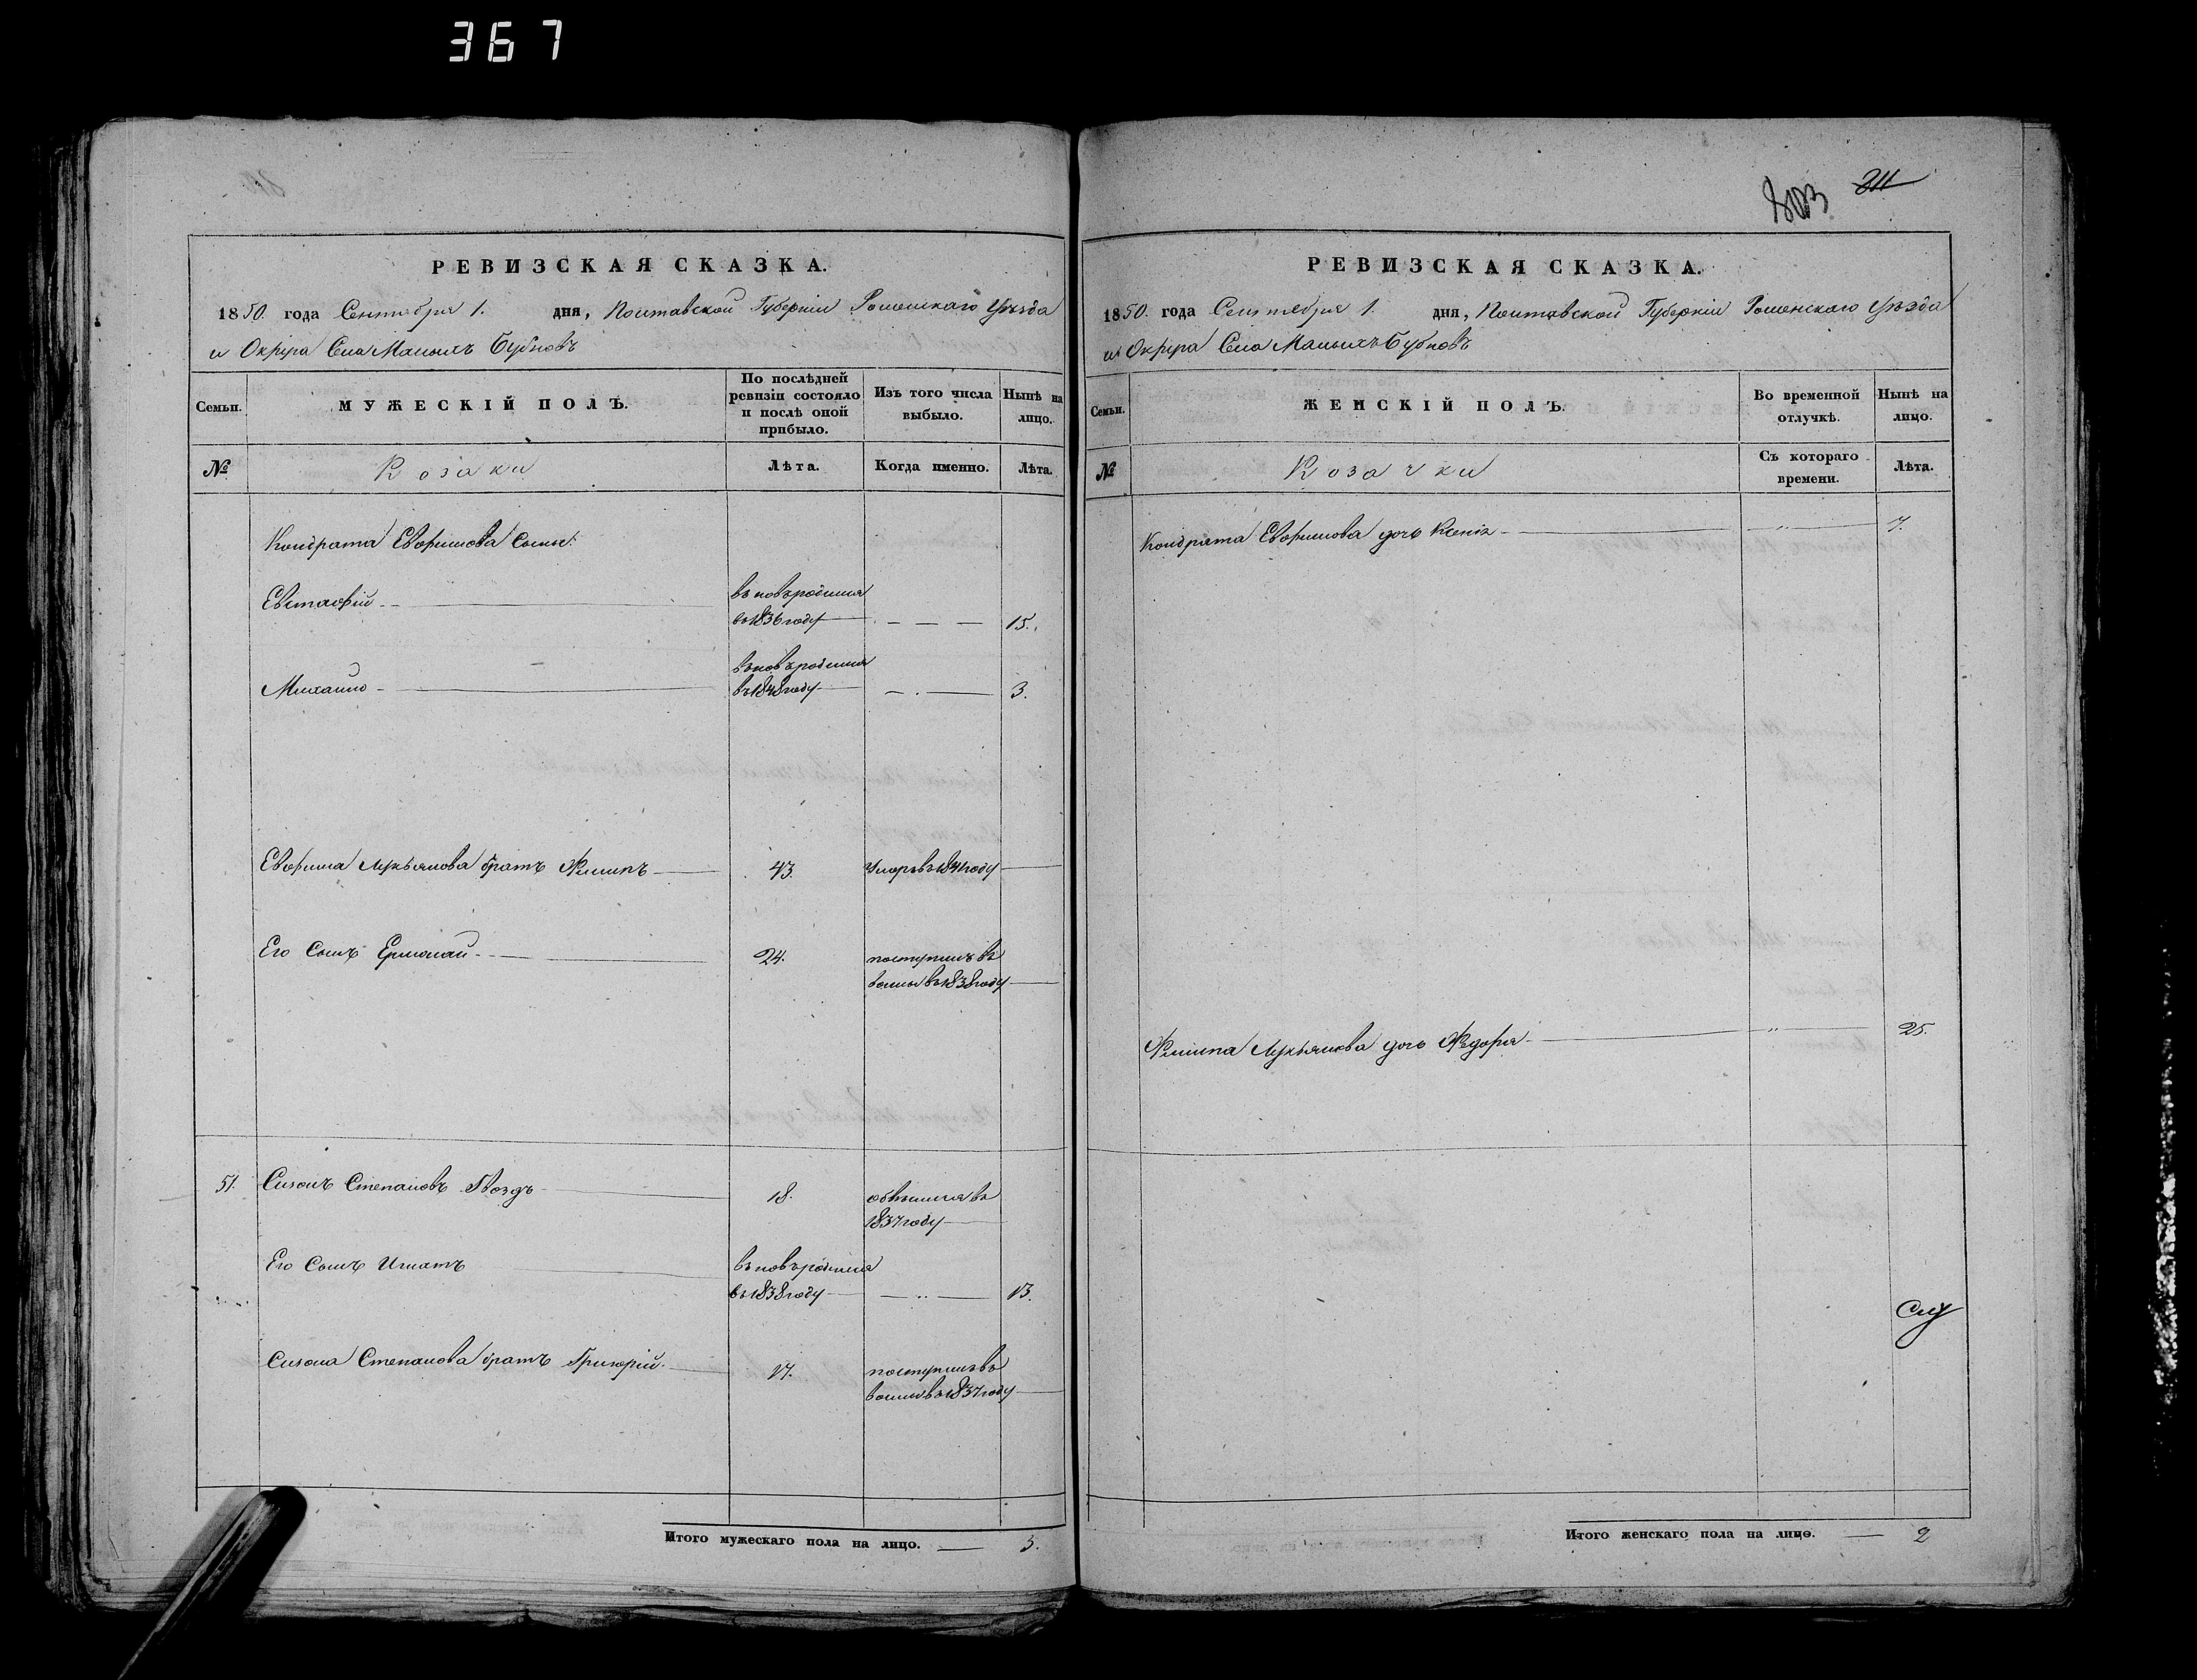 367
803 811
РЕВИЗСКАЯ СКАЗКА.
1850. года Сентября 1. дня, Полтавской Губерніи Роменскаго Уѣзда
и Округа Села Малыхъ Бубновъ
Семьи.
МУЖЕСКІЙ ПОЛЪ.
По послѣдней ревизіи состояло и послѣ оной прибыло.
Изъ того числа выбыло.
Нынѣ на лицо.
№
Козаки
Лѣта.
Когда именно.
Лѣта.
Кондрата Евфимова Сыны:
Евстафій
въновьродился
въ 1836 году 15.
Михайло
въновьродился
въ 1848 году 3.
Евфима Лукьянова братъ Филипъ 43. Умеръ въ 1841 году
Его Сынъ Ермолай 24. поступилъ въ
въ 1838 году
51. Сизонъ Степановъ Гвоздь 18.
1837 году
Его Сынъ Игнатъ въновьродился
въ 1838 году 13.
Сизона Степанова братъ Григорій 17. поступилъ въ
въ 1837 году
Итого мужескаго пола на лицо. 3.
РЕВИЗСКАЯ СКАЗКА.
1850. года Сентября 1. дня, Полтавской Губерніи Роменскаго Уѣзда
и Округа Села Малыхъ Бубновъ
Семьи.
ЖЕНСКІЙ ПОЛЪ.
Во временной отлучкѣ.
Нынѣ на лицо.
№
Козачки
Съ котораго времени.
Лѣта.
Кондрата Евфимова дочь Ксенія " 7.
Филипа Лукьянова дочь Федора " 25.
Итого женскаго пола на лицо. 2